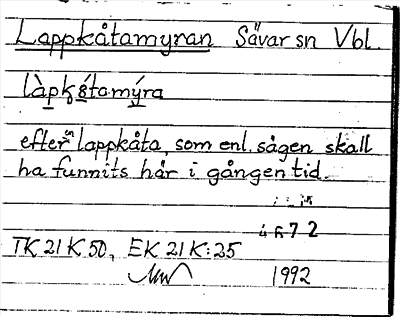 Lappkåtamyran Sävar sn Vbl.
làpkǻtamýra
efter en lappkåta, som enl. sägen skall
ha funnits här i gången tid.
4672
TK 21 K 50, EK 21 K:25
1992